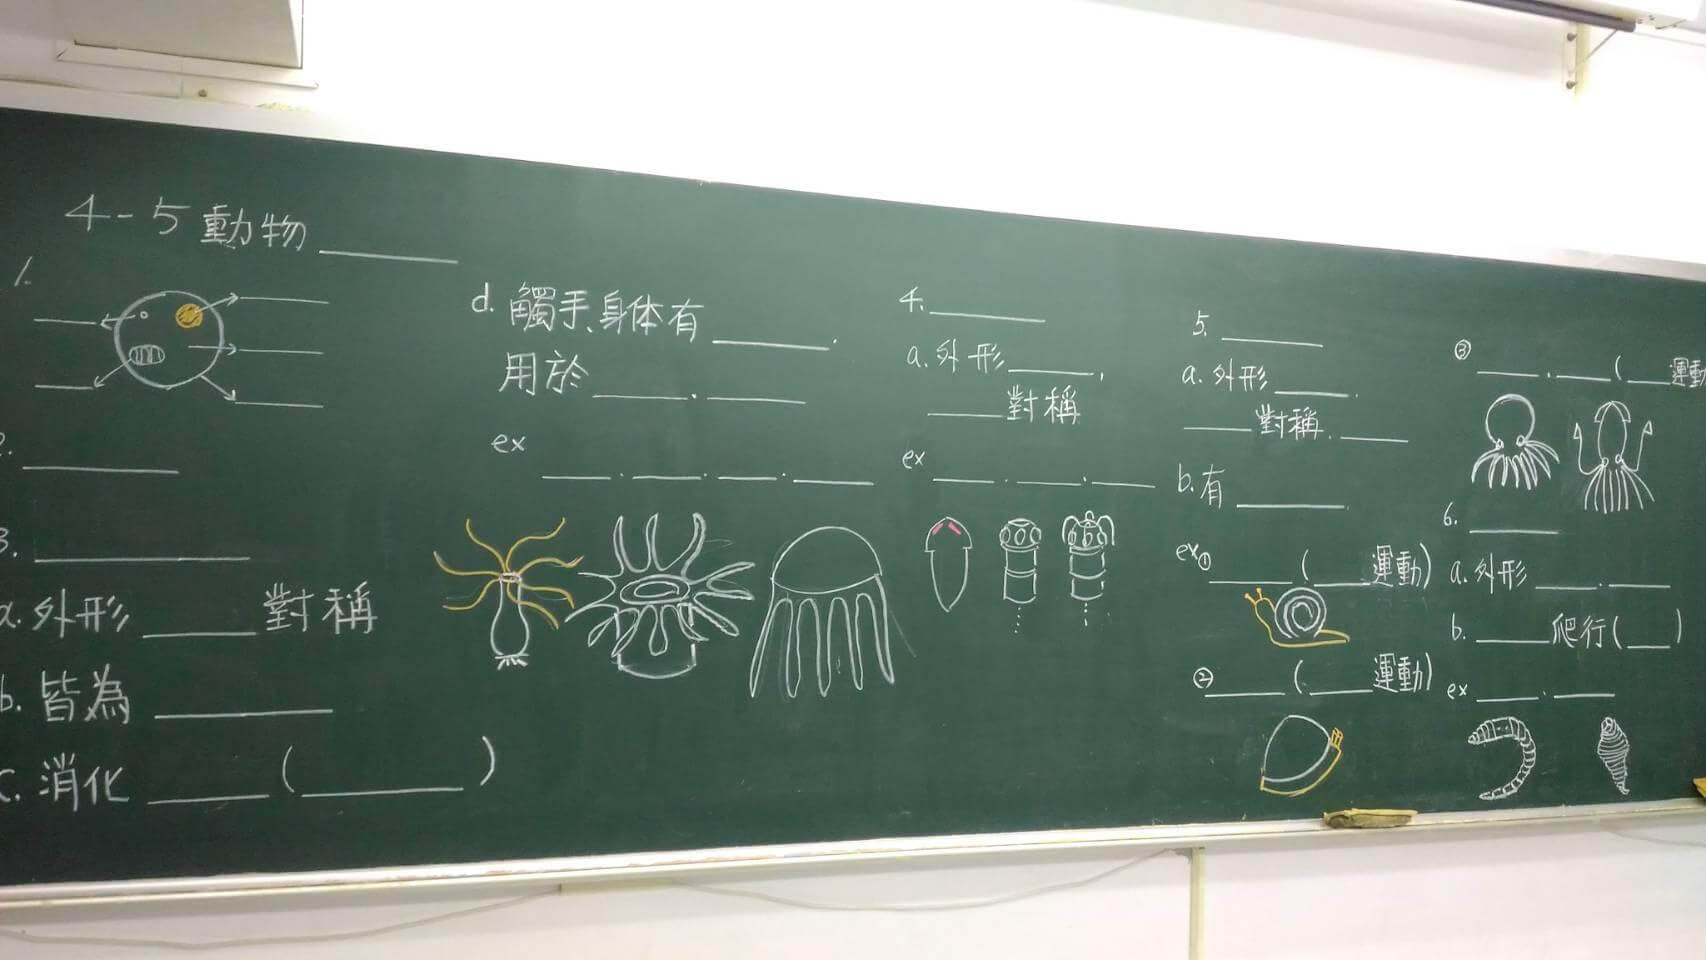 4-5 動物
1.
2.
3.
a. 外形 對稱
b. 皆為
c. 消化 ( )
d. 觸手、身体有
用於
ex
4.
a. 外形
對稱
ex
5.
a. 外形
對稱.
b. 有
ex① ( 運動)
② ( 運動)
③ ( 運動
6.
a. 外形
b. 爬行( )
ex